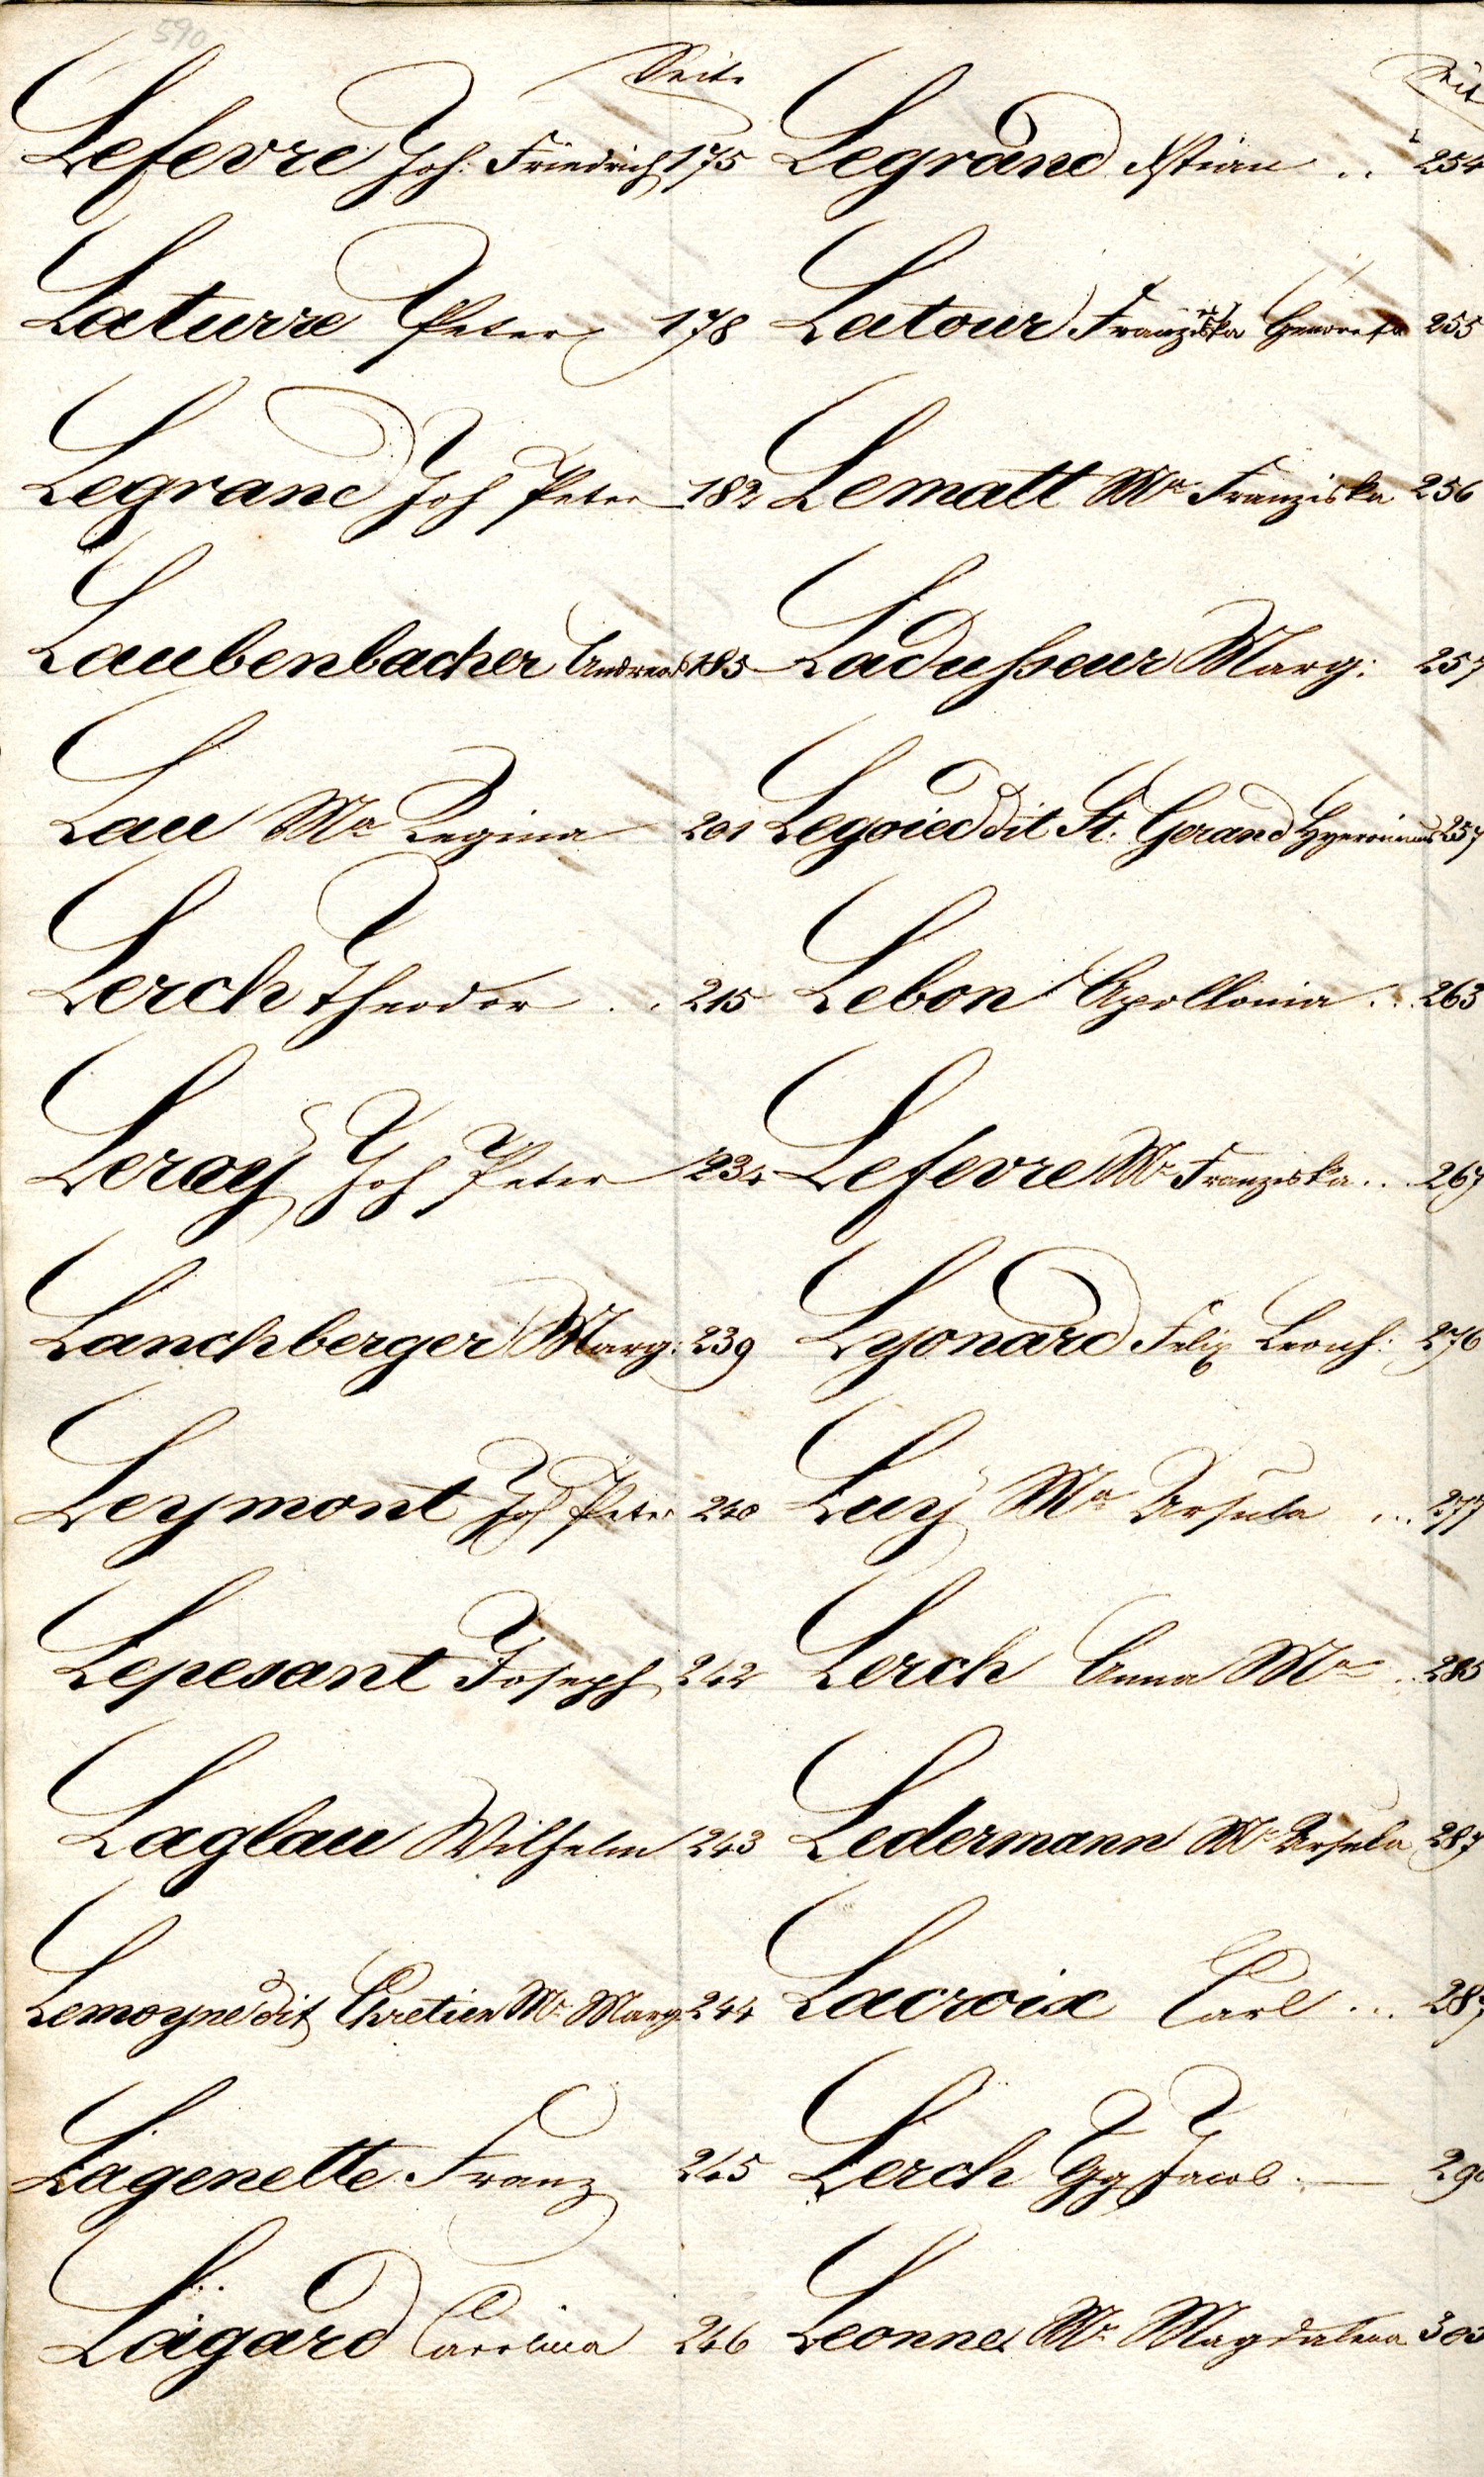 590
Seite
Lefevre Joh: Friedrich 175
Laturre Peter 178
Legrand Joh Peter 182
Laubenbacher Andreas 185
Lau Ma Regina 201
Lerch Theodor .. 215
Leroy Joh Peter 234
Lanchberger Marg: 239
Leymont Joh Peter 240
Lepesant Joseph 242
Laglau Wilhelm 243
Lemoyne dit Chretien Ma Marg. 244
Lagenette Franz 245
Lagard Carolina 246
Seit
Legrand .. 254
Latour Franziska Genovefa 255
Lematt Ma Franziska 256
Ladußeur Marg: 257
Legoied dit St. Gerand Hyeronimus 257
Lebon Apollonia .. 263
Lefevre Ma Franziska .. 267
Lyonard Felix Leonh: 276
Luy Ma Ursula ... 277
Lerch Anna Ma .. 285
Ledermann Ma Ursula 287
Lacroix Carl ... 287
Lerch Gg Jacob 290
Leonnet Ma Magdalena 303